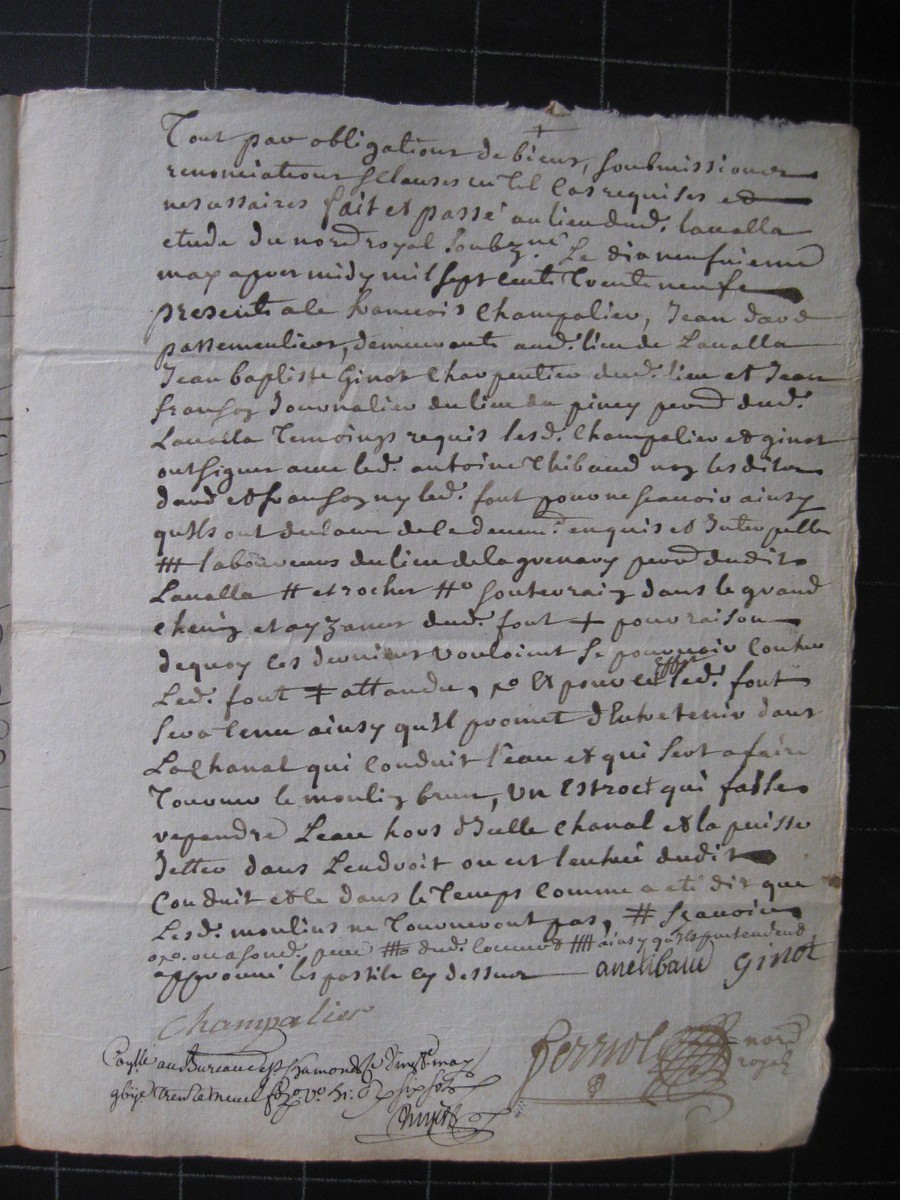 Tout par obligations de biens, soubmissions
renonciations & Clauses en tel Cas requises et
nesassaires fait et passé au lieu dud. Lavalla
etude du nore royal soubzne. Le dixneufuieme
may apres midy mil sept cents trente neufe
presents a le francois Champalier, Jean dard
passementiers, demeurants aud. lieu de Lavalla
Jean baptiste Ginot Charpentier dud. lieu et Jean
Journalier du lieu du piney dud.
Lavalla Temoings requis lesd. Champalier et ginot
ont signer avec led. antoine thibaud noy lesdites
dard et ny led. font pour ne scauoir ainsy
qu'ils ont declare de le enquis et Interpelle
laboureurs du lieu de la grenary dudit
Lavalla # et rocher # souterrain dans le grand
chemin et ayzances dud. font + pour raison
dequoy les derniers vouloient se pourvoir contre
Led. font ‡ attandu, et pour led. font
sera tenu ainsy qu'il promet d'Entretenir dans
La Chanal qui Conduit l'eau et qui sert a faire
Tourner le moulin brun, un Estroct qui fasse
rependre l'eau hors d'Icelle Chanal et la puisse
Jetter dans L'endroit ou est l'entrée dudit
Conduit et le dans le Temps Comme a eté dit que
Lesd. moulins ne Tourneront pas, # scauoir
dud. ainsy qu'ils pretendent
approuué les postile cy dessus antthibaud Ginot
Champalier
ferriol nore
royal
au Bureau de St Chamond le may
trente neuf six sols